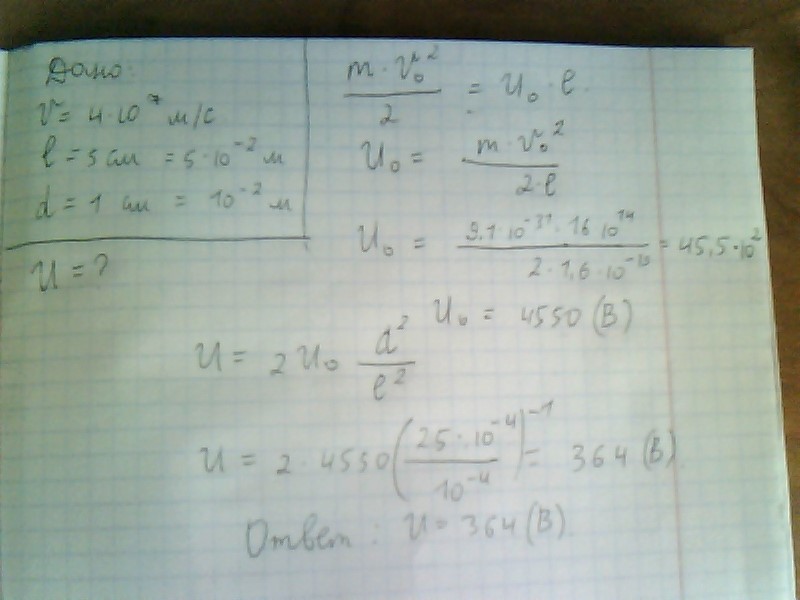 Дано:
V = 4·10⁷ м/с
l = 5 см = 5·10⁻² м
d = 1 см = 10⁻² м
U = ?
m·V₀²/2 = U₀·e.
U₀ = m·V₀²/2·e
U₀ = 9.1·10⁻³¹·16 10¹⁴/2·1,6·10⁻¹⁹ = 45,5·10²
U₀ = 4550 (В)
U = 2U₀ d²/l²
U = 2·4550(25·10⁻⁴/10⁻⁴)⁻¹ = 364 (В)
Ответ: U = 364 (В).